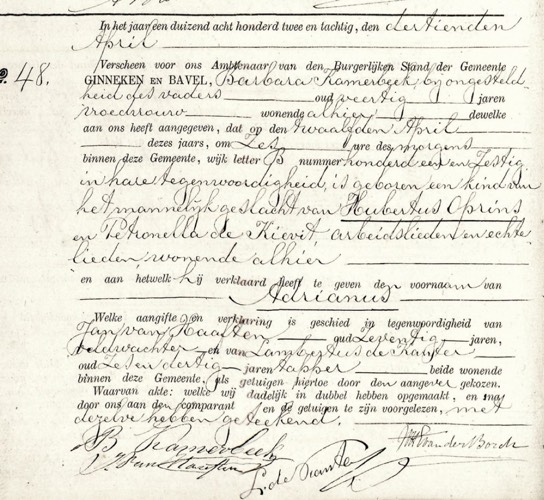 In het jaar een duizend acht honderd twee en tachtig, den dertienden
April
Verscheen voor ons Ambtenaar van den Burgerlijken Stand der Gemeente
48.
GINNEKEN EN BAVEL, Barbara Kamerbeek bij ongesteld-
heid des vaders oud veertig jaren
vroedvrouw wonende alhier dewelke
aan ons heeft aangegeven, dat op den twaalfden April
dezes jaars, om Zes ure des morgens
binnen deze Gemeente, wijk letter B nummer honderd een en Zestig
in hare tegenwoordigheid, is geboren een kind van
het mannelijk geslacht van Hubertus Oprins
en Petronella de Kievit, arbeidslieden en echte-
lieden, wonende alhier
en aan hetwelk hij verklaard heeft te geven den voornaam van
Adrianus
Welke aangifte en verklaring is geschied in tegenwoordigheid van
Jan van Haaften oud Zeventig jaren,
veldwachter en van Lambertus de Kanter
oud Zes en dertig jaren tapper beide wonende
binnen deze Gemeente, als getuigen hiertoe door den aangever gekozen.
Waarvan akte: welke wij dadelijk in dubbel hebben opgemaakt, en na
door ons aan den comparant en de getuigen te zijn voorgelezen, met
dezelve hebben geteekend.
B Kamerbeek
van der Borch
J. van Haaften
L. de Kanter